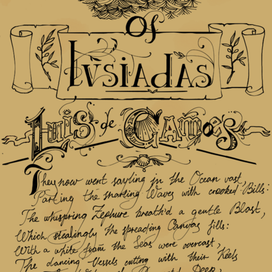 OS
LVSIADAS
Luis de Camões
They now went sayling in the Ocean vast,
Parting the snarling Waves with crooked Bills:
The whispring Zephire breath'd a gentle Blast,
Which stealingly the spreading Canvas fills:
With a white foam the Seas were overcast,
The dancing Vessels cutting with their Keels